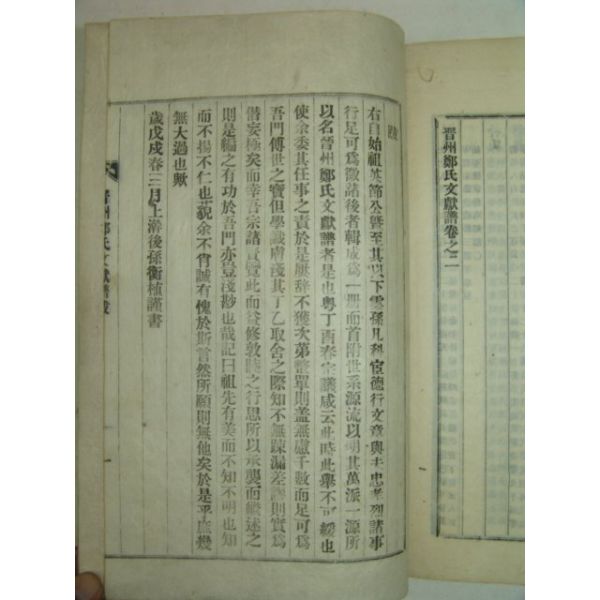 晋州鄭氏文獻譜卷之二
跋
右自始祖英節公曁至其以下雲孫凡科宦德行文章與夫忠孝烈諸事
行足可爲徵諸後者輯成爲一冊而首附世系源流以明其萬派一源所
以名晉州鄭氏文獻譜者是也粤丁酉春宗議咸云此時此擧不可緩也
使余委其任事之責於是屢辞不獲次第整單則盖無慮千數而足可爲
吾門傳世之寶但學識膚淺其丁乙取舍之際知不無踈漏差謬則實爲
僭妄極矣而幸吾宗諸賢覽此而益修敦睦之行思所以承襲而繼述之
則是編之有功於吾門亦豈淺尠也哉記曰祖先有美而不知不明也知
而不揚不仁也藐余不肖誠有愧於斯言然所願則無他矣於是乎庶幾
無大過也歟
歲戊戌春三月上澣後孫衡植謹書
晋州鄭氏文獻譜跋